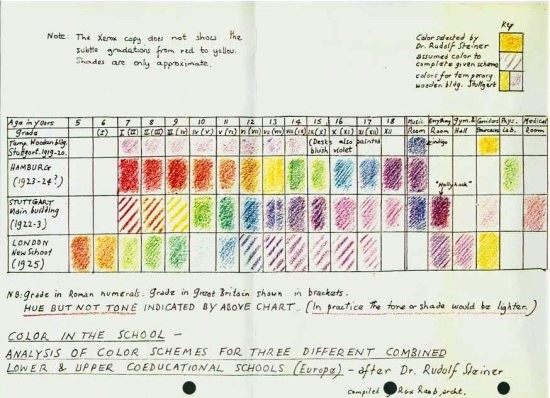 Note: The Xerox copy does not show the
subtle gradations from red to yellow.
Shades are only approximate.
Key
Color selected by
Dr. Rudolf Steiner
assumed color to
complete given scheme
colors for temporary
wooden bldg. Stuttgart
Age in years 5 6 7 8 9 10 11 12 13 14 15 16 17 18 Music Eurythmy Gym. & Corridors Phys. Medical
Grade (I) I (II) II (III) III (IV) IV (V) V (VI) VI (VII) VII (VIII) VIII (IX) IX (X) X (XI) XI (XII) XII Room Room Hall Staircases Lab. Room
Temp. Wooden bldg. (Desks also painted indigo
Stuttgart. 1919-20. bluish violet
HAMBURG
(1923-24?)
"Hollyhock"
STUTTGART
Main building
(1922-3)
LONDON
New School
(1925)
NB: grade in Roman numerals. Grade in Great Britain shown in brackets.
HUE BUT NOT TONE INDICATED BY ABOVE CHART. (In practice the tone or shade would be lighter.)
COLOR IN THE SCHOOL —
ANALYSIS OF COLOR SCHEMES FOR THREE DIFFERENT COMBINED
LOWER & UPPER COEDUCATIONAL SCHOOLS (Europe) - after Dr. Rudolf Steiner
compiled by Rex Raab, archt.